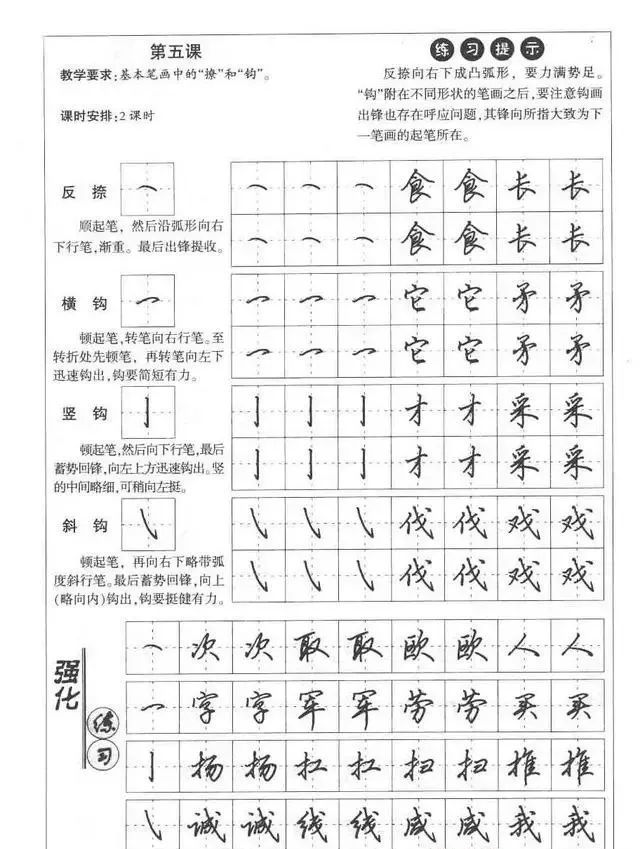 第五课
教学要求:基本笔画中的“撩”和“钩”。
课时安排:2课时
练习提示
反捺向右下成凸弧形，要力满势足。
“钩”附在不同形状的笔画之后,要注意钩画
出锋也存在呼应问题,其锋向所指大致为下
一笔画的起笔所在。
反捺
顺起笔，然后沿弧形向右
下行笔,渐重。最后出锋提收。
食 食 长 长
食 食 长 长
横钩
顿起笔,转笔向右行笔。至
转折处先顿笔，再转笔向左下
迅速钩出,钩要简短有力。
它 它 矛 矛
它 它 矛 矛
竖钩
顿起笔,然后向下行笔,最后
蓄势回锋,向左上方迅速钩出。竖
的中间略细,可稍向左挺。
才 才 采 采
才 才 采 采
斜钩
顿起笔，再向右下略带弧
度斜行笔。最后蓄势回锋,向上
(略向内)钩出,钩要挺健有力。
伐 伐 戏 戏
伐 伐 戏 戏
强化
练习
次 次 取 取 欧 欧 人 人
字 字 军 军 劳 劳 买 买
扬 扬 扛 扛 扫 扫 推 推
诚 诚 线 线 咸 咸 我 我